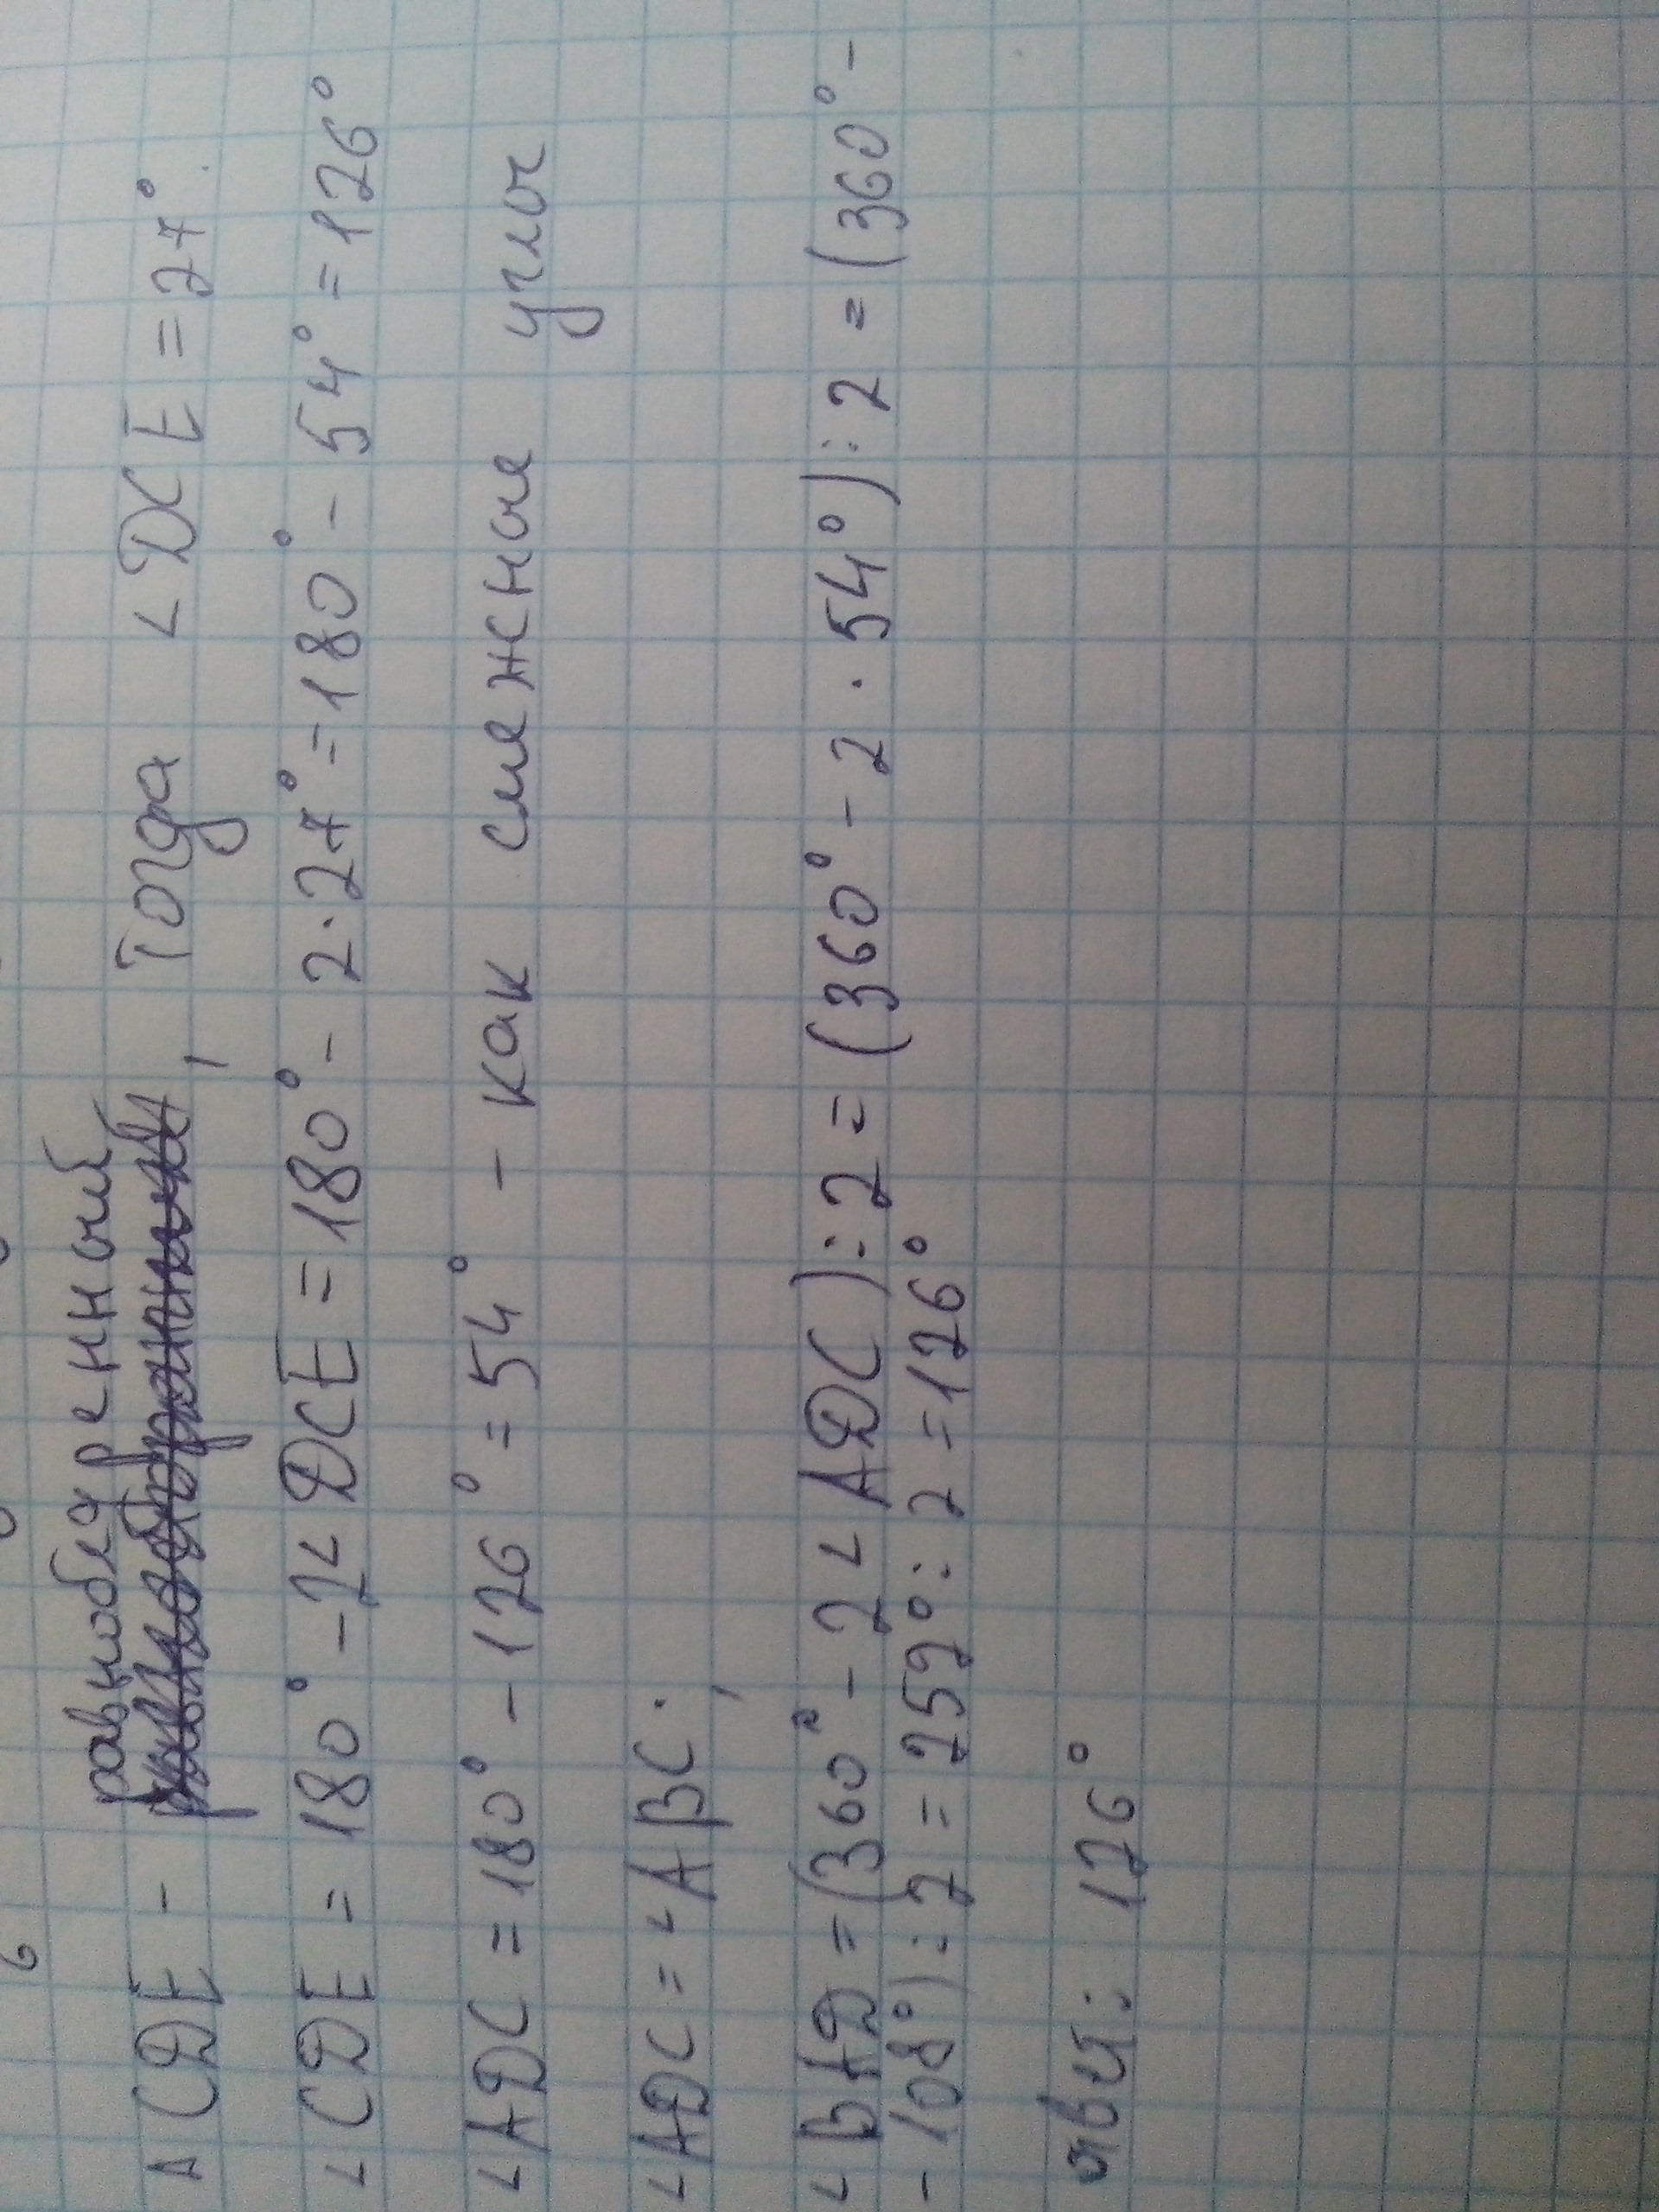 равнобедренный
Δ CDE - , Тогда ∠DCE = 27°.
∠CDE = 180° - 2∠DCE = 180° - 2·27° = 180° - 54° = 126°
∠ADC = 180° - 126° = 54° - как смежные углы
∠ADC = ∠ABC;
∠BAD = (360° - 2∠ADC):2 = (360° - 2·54°):2 = (360° -
- 108°):2 = 252°:2 = 126°
отвт: 126°